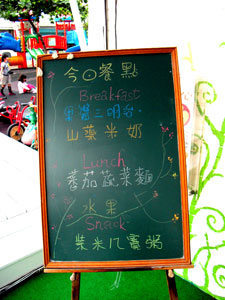 今日餐點
Breakfast
果醬三明治
山藥米奶
Lunch
蕃茄蔬菜麵
水果
Snack
紫米八寶粥